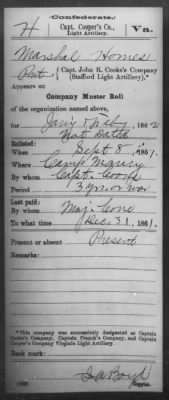 (Confederate.)
H Capt. Cooper's Co., Light Artillery. Va.
Marshal Homes
Pvt (Capt. John R. Cooke's Company (Stafford Light Artillery).*
Appears on
Company Muster Roll
of the organization named above,
for Jan'y & Feb'y, 1862
Not Dated
Enlisted:
When Sept 8, 1861.
Where Camp
By whom Capt. Cooke
Period 3 yrs or war
Last paid:
By whom Maj. Cone
To what time Dec. 31, 1861.
Present or absent Present
Remarks:
*This company was successively designated as Captain
Cooke's Company, Captain French's Company, and Captain
Cooper's Company Virginia Light Artillery.
Book mark:
Boyd
Copyist.